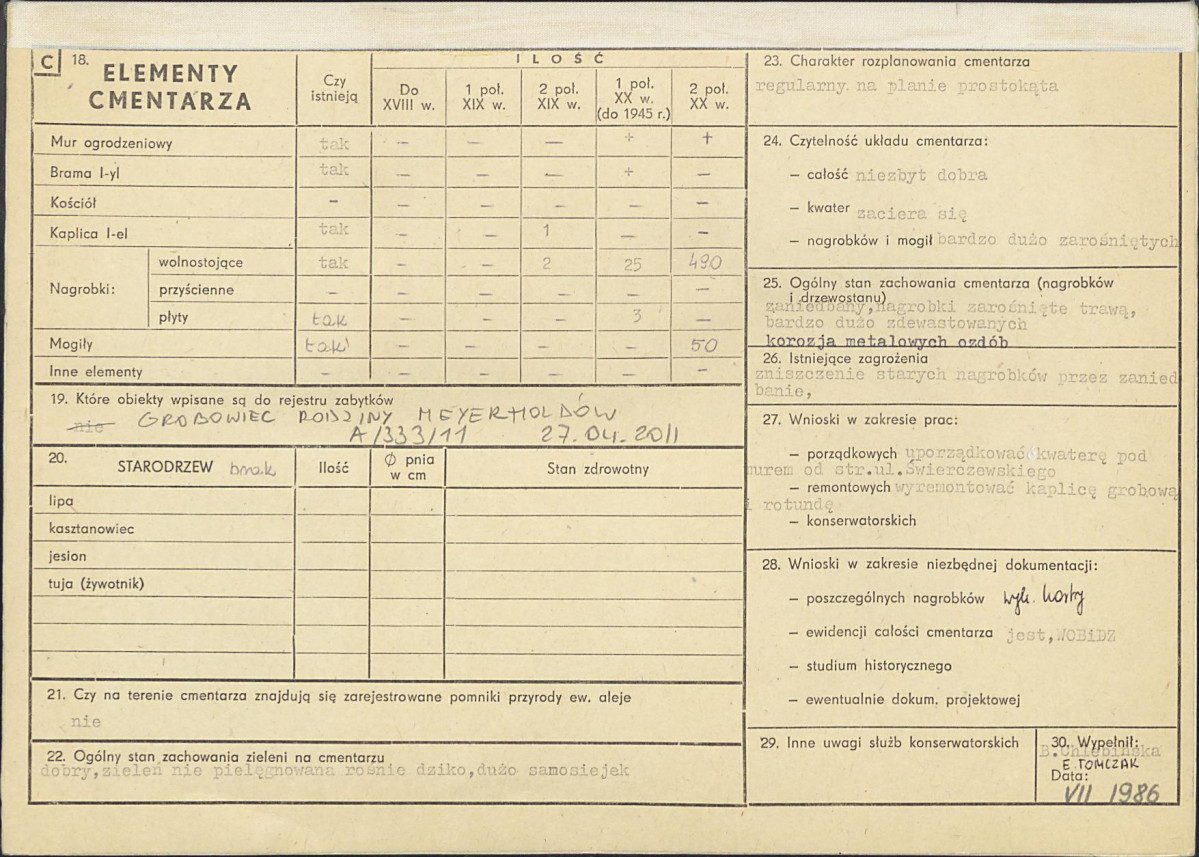 C 18. ELEMENTY CMENTARZA
Czy istnieją
I L O Ś Ć
Do XVIII w.
1 poł. XIX w.
2 poł. XIX w.
1 poł. XX w. (do 1945 r.)
2 poł. XX w.
Mur ogrodzeniowy tak — — — + +
Brama I-yl tak — — — + —
Kościół — — — — — —
Kaplica I-el tak — — 1 — —
Nagrobki:
wolnostojące tak — — 2 25 490
przyścienne — — — — — —
płyty tak — — — 3 —
Mogiły tak — — — — 50
Inne elementy — — — — — —
19. Które obiekty wpisane są do rejestru zabytków
nie GROBOWIEC RODZINY MEYERHOLDÓW
A/333/11 27.04.2011
20. STARODRZEW brak
Ilość
Ø pnia w cm
Stan zdrowotny
lipa
kasztanowiec
jesion
tuja (żywotnik)
21. Czy na terenie cmentarza znajdują się zarejestrowane pomniki przyrody ew. aleje
nie
22. Ogólny stan zachowania zieleni na cmentarzu
dobry,zieleń nie pielęgnowana rośnie dziko,dużo samosiejek
23. Charakter rozplanowania cmentarza
regularny. na planie prostokąta
24. Czytelność układu cmentarza:
— całość niezbyt dobra
— kwater zaciera się
— nagrobków i mogił bardzo dużo zarośniętych
25. Ogólny stan zachowania cmentarza (nagrobków
i drzewostanu)
zaniedbany,nagrobki zarośnięte trawą,
bardzo dużo zdewastowanych
korozja metalowych ozdób
26. Istniejące zagrożenia
zniszczenie starych nagrobków przez zanied
banie,
27. Wnioski w zakresie prac:
— porządkowych uporządkować kwaterę pod
murem od str.ul.Świerczewskiego
— remontowych wyremontować kaplicę grobową
i rotundę
— konserwatorskich
28. Wnioski w zakresie niezbędnej dokumentacji:
— poszczególnych nagrobków wyk. karty
— ewidencji całości cmentarza jest,WOBiDZ
— studium historycznego
— ewentualnie dokum. projektowej
29. Inne uwagi służb konserwatorskich
30. Wypełnił:
B.Chlebińska
E.TOMCZAK
Data:
VII 1986